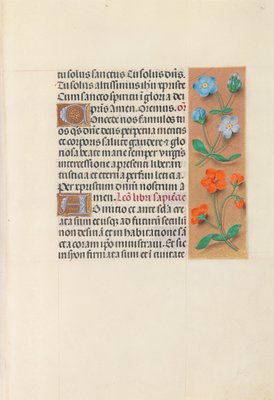 tu solus sanctus Tu solus dñs.
Tu solus altissimus ihũ xp̃ste
Cum sancto spiritu in gloria dei
p̃ris Amen. Oremus. or̃o
Concede nos famulos tu
os q̃s dñe deus perpetua mentis
et corporis salute gaudere et glo
riosa beate marie semper virgĩs
intercessione a presenti liberari
tristicia et eterna perfrui leticia.
Per xp̃ristum dñm nostrum a
men. Lcõ libri sapiẽcie
Ab initio et ante sc̃la cre
ata sum et usq̃ ad futurũ sc̃culũ
non desinã et in habitatione sã
cta coram ip̃o ministraui. Et sic
in syon firmata sum et ĩ ciuitate